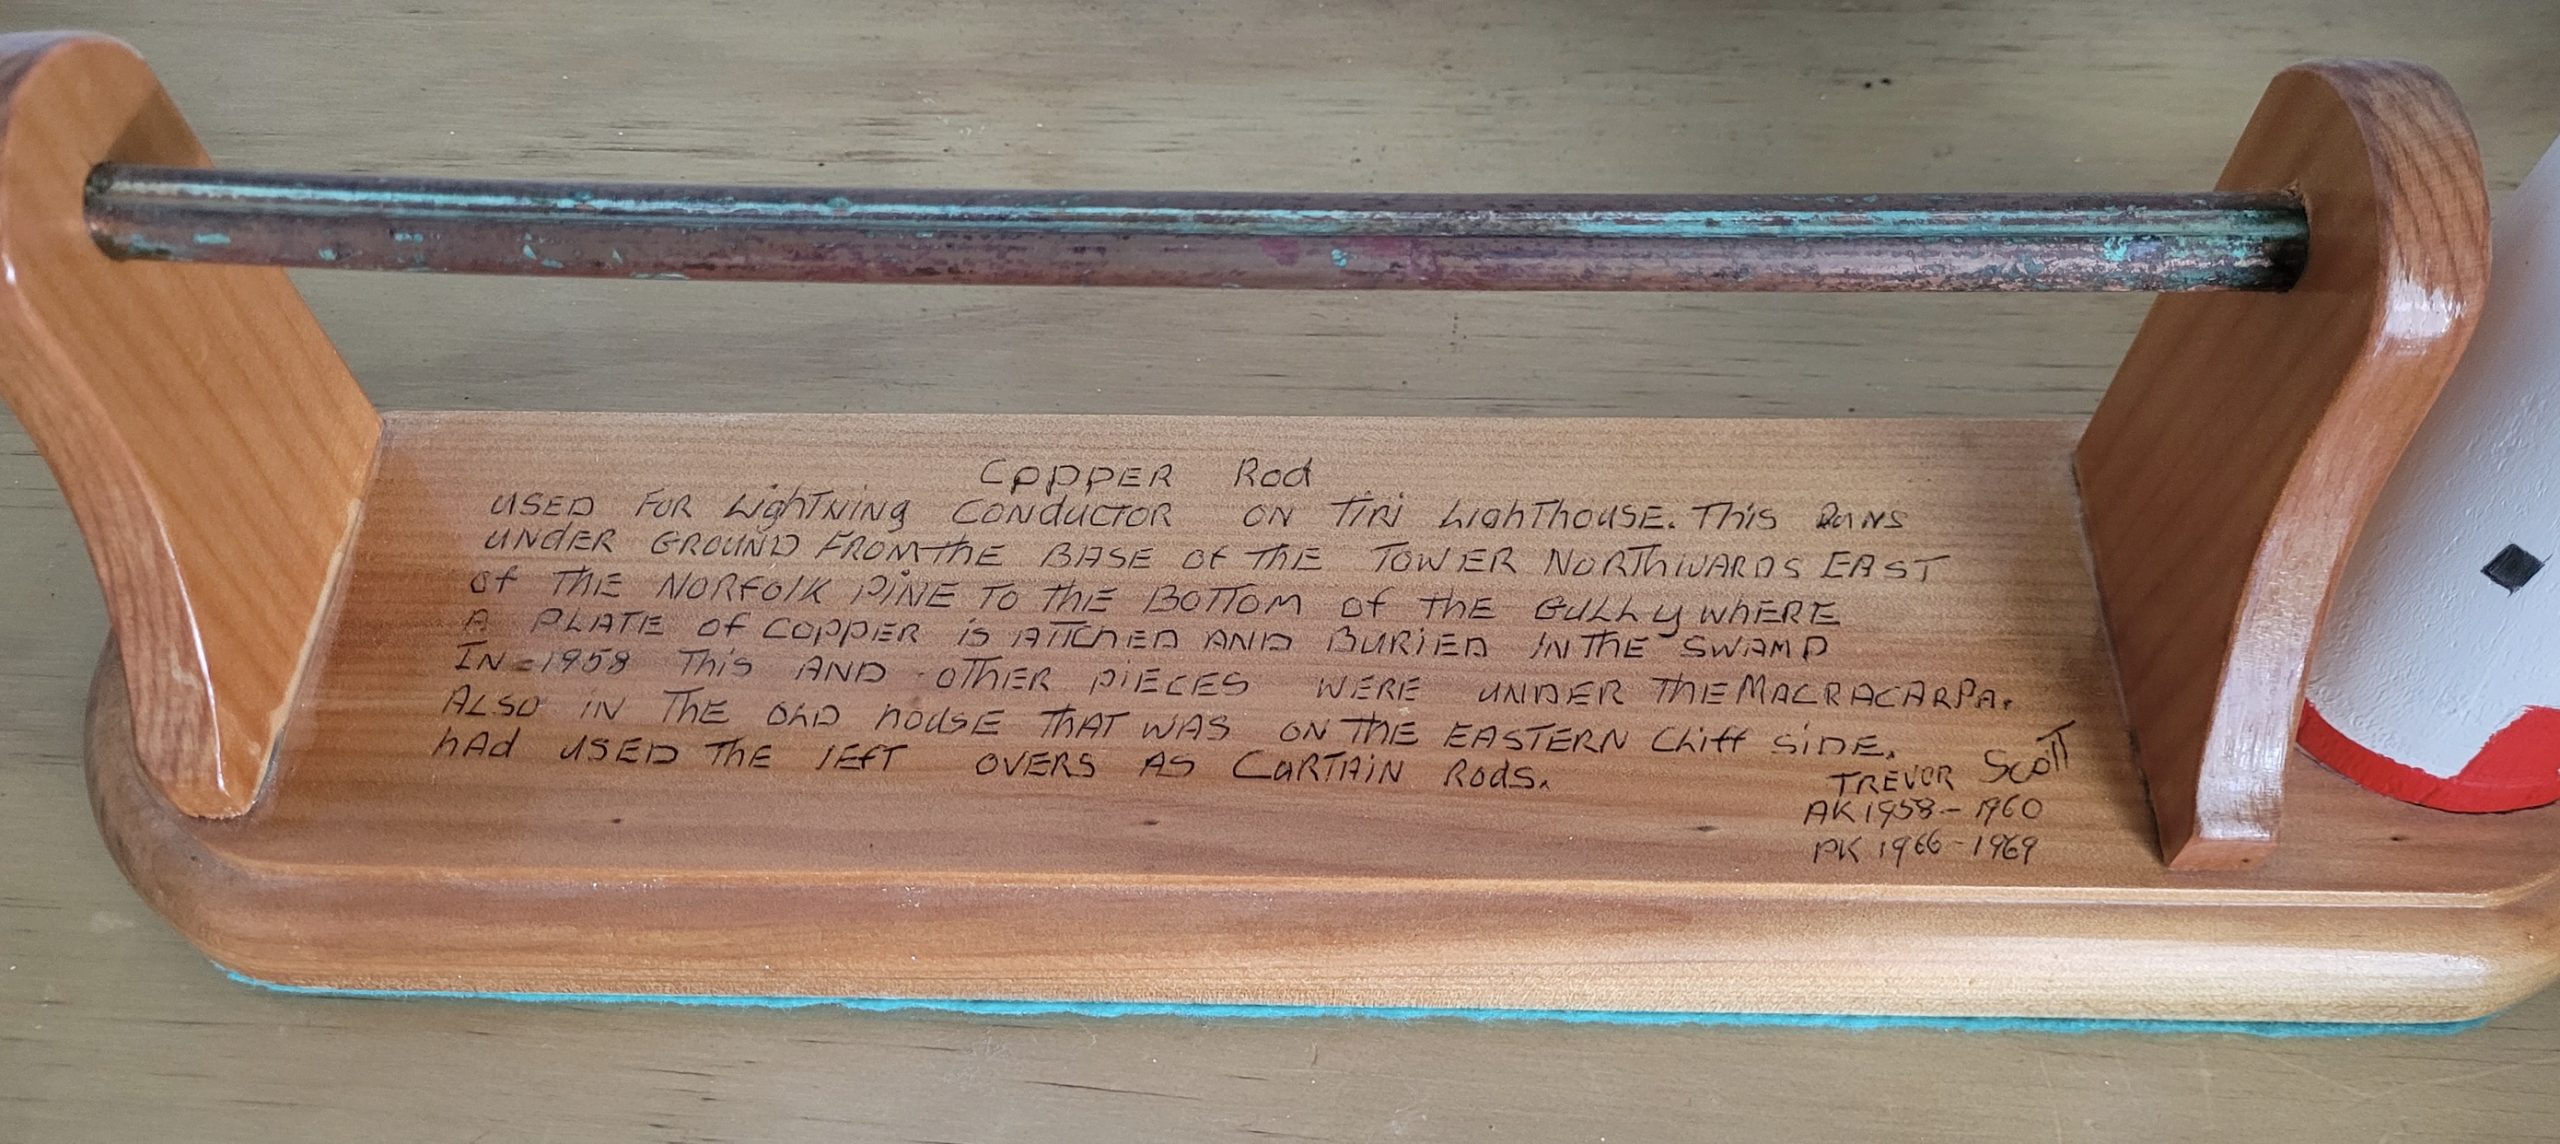 COPPER Rod
USED FOR LighTNiNg CONduCTOR ON TiRi LighThOUSE. This RUNS
UNDER GROUND FROM thE BASE Of ThE TOWER NORThWARDS EAST
Of THE NORFOlK PiNE TO thE BOTTOM Of thE GULLy WhERE
A PLATE Of COPPER iS ATTCHED AND BURiED IN ThE SWAMP
IN - 1958 This AND OTHER PiECES WERE UNDER ThE MACRACARPA.
ALSO iN ThE OLD hOUSE ThAT WAS ON ThE EASTERN Cliff SiDE.
hAd USED ThE lEfT OVERS AS CURTAiN Rods.
TREVOR ScoTT
AK 1958 - 1960
PK 1966 - 1969